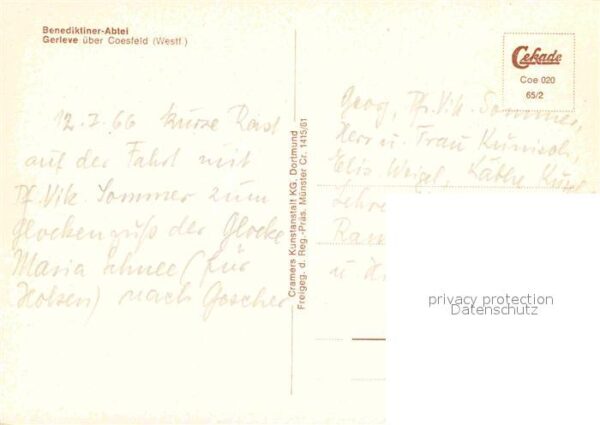 Benediktiner-Abtei
Gerleve über Coesfeld (Westf.)
12.7.66 kurze Rast
auf der Fahrt mit
Pf. Vik. Sommer zum
Glockenguß der Glocke
Maria Schnee (für
Holsen) nach Gescher
Cramers Kunstanstalt KG. Dortmund
Freigeg. d. Reg.-Präs. Münster Cr. 1415/61
Cekade
Coe 020
65/2
Georg, Pf. Vik. Sommer,
Herr u. Frau Kunisch,
Elis. Weigel, Käthe
Lehre
u
privacy protection
Datenschutz